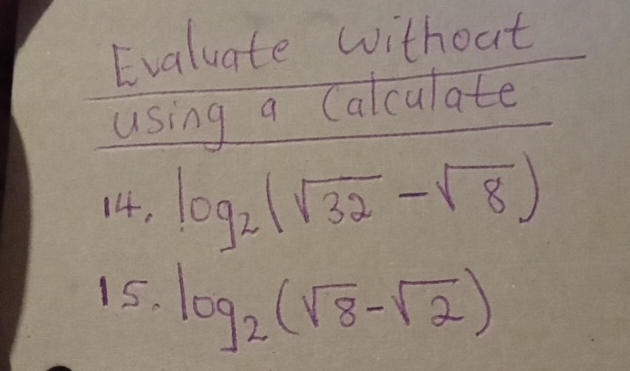 Evaluate without
using a Calculate
14. log₂(√32 - √8)
15. log₂(√8 - √2)